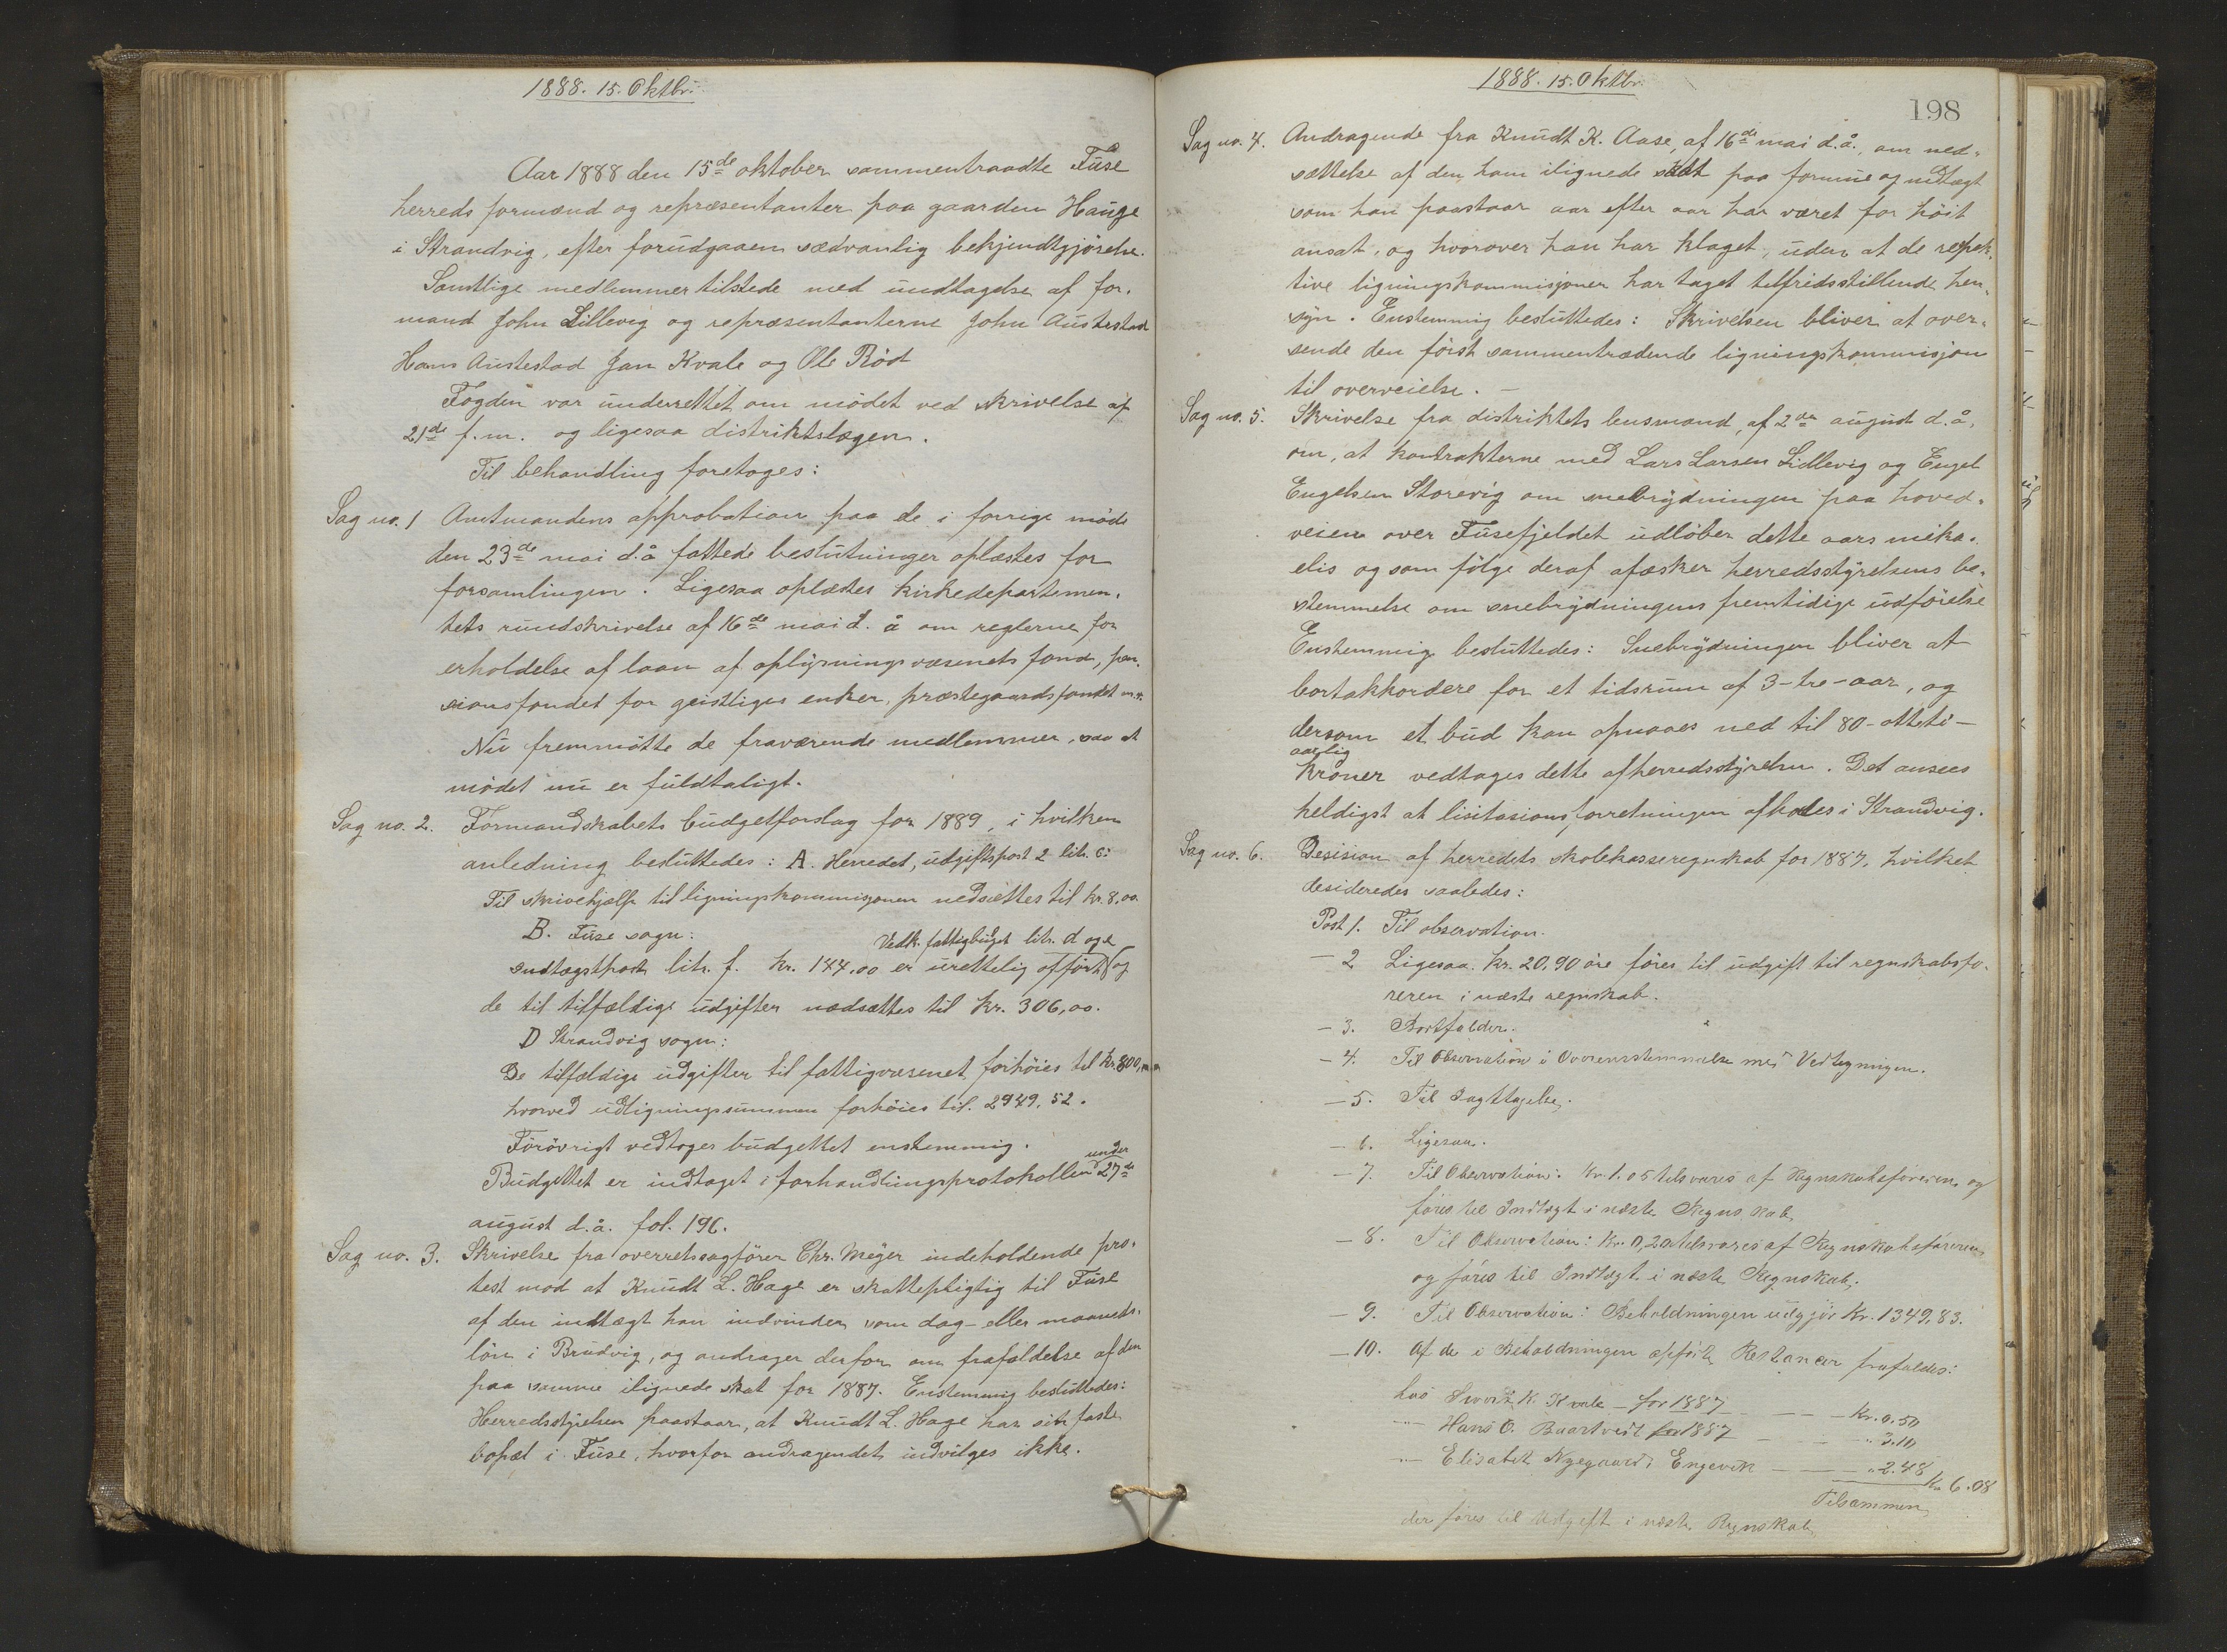 1888. 15. Oktbr.
Aar 1888 den 15de oktober sammentraadte Fuse
herreds formænd og repræsentanter paa gaarden Hauge
i Strandvig, efter forudgaaen sædvanlig bekjendtgjörelse.
Samtlige medlemmer tilstede med undtagelse af for-
mand John Lillevig og repræsentanterne John Austestad
Hans Austestad Jan Kvale og Ole Röd
Fogden var underrettet om mödet ved skrivelse af
21de f.m. og ligesaa distriktslægen.
Til behandling foretoges:
Sag no. 1 Amtmandens approbation paa de i forrige möde
den 23de mai d.å fattede beslutninger oplæstes for
forsamlingen. Ligesaa oplæstes kirkedepartemen-
tets rundskrivelse af 16de mai d. å om reglerne for
erholdelse af laan af oplysningsvæsenets fond, pen-
sionsfondet for geistliges enker, præstegaardsfondet m.v.
Nu fremmötte de fraværende medlemmer, saa at
mödet nu er fuldtaligt.
Sag no. 2. Formandskabets budgetforslag for 1889, i hvilken
anledning besluttedes: A. Herredet, udgiftspost 2 litr. c:
Til skrivehjælp til ligningskommisjonen nedsættes til kr. 8,00.
B. Fuse sogn:
Vedk. fattigbudget litr. d og e
Indtægstpost litr. f. kr. 144,00 er urettelig opfört og
de til tilfældige udgifter nedsættes til kr. 306,00.
D Strandvig sogn:
De tilfældige udgifter til fattigvæsenet forhöies til kr. 800,
hvorved udligningssummen forhöies til. 2949,52.
Forövrigt vedtoges budgettet enstemmig.
Budgettet er indtaget i forhandlingsprotokollen under 27de
august d.å. fol. 196.
Sag no. 3. Skrivelse fra overretssagförer Chr. Meyer indeholdende pro-
test mod at Knudt L. Hage er skattepligtig til Fuse
af den indtægt han indvinder som dag- eller maaneds-
lön i Brudvig, og andrager derfor om frafaldelse af den
paa samme ilignede skat for 1887. Enstemmig besluttedes:
Herredsstyrelsen paastaar, at Knudt L. Hage har sin faste
bopæl i Fuse, hvorfor andragendet indvilges ikke.
1888. 15. Oktbr.
198
Sag no. 4. Andragende fra Knudt K. Aase, af 16de mai d.å., om ned-
sættelse af den ham ilignede skat paa formue og indtægt
som han paastaar aar efter aar har været for höit
ansat, og hvorover han har klaget, uden at de respek-
tive ligningskommisjoner har taget tilfredsstillende hen-
syn. Enstemmig besluttedes: Skrivelsen bliver at over-
sende den först sammentrædende ligningskommisjon
til overveielse. –
Sag no. 5. Skrivelse fra distriktets lensmand, af 2den august d.å,
om, at kontrakterne med Lars Larsen Lidlevig og Engel
Engelsen Storevig om snebrydningen paa hoved-
veien over Fusefjeldet udlöber dette aars mika-
elis og som fölge deraf afæsker herredsstyrelsens be-
stemmelse om snebrydningens fremtidige udförelse
Enstemmig besluttedes: Snebrydningen bliver at
bortakkordere for et tidsrum af 3-tre-aar, og
dersom et bud kan opnaaes ned til 80-otteti-
aarlig
kroner vedtages dette af herredsstyrelsen. Det ansees
heldigst at lisitasionsforretningen afholdes i Strandvig.
Sag no. 6. Desision af herredets skolekasseregnskab for 1887, hvilket
desideredes saaledes:
Post 1. Til observation.
– 2 Ligesaa. kr. 20,90 öre föres til udgift til regnskabsfö-
reren i næste regnskab.
– 3. Bortfalder.
– 4. Til Observation i Overensstemmelse med Vedtegningen.
– 5. Til Iagttagelse.
– 6. Ligesaa.
– 7. Til Observation: Kr. 1.05 tilsvares af Regnskabsföreren og
föres til Indtægt i næste Regnskab,
– 8. Til Observation: Kr. 0,20 tilsvares af Regnskabsföreren
og föres til Indtægt i næste Regnskab.
– 9. Til Observation: Beholdningen udgjör Kr. 1349,83.
– 10. Af de i Beholdningen opförte Restancer frafaldes:
hos K. Kvale – for 1887 – – Kr. 0,50
–"– Hans O. for 1887 – – " 3.10
–"– Elisabet Nygaard, Engevik – – " 2.48
Tilsammen Kr. 6.08
der föres til Udgift i næste Regnskab